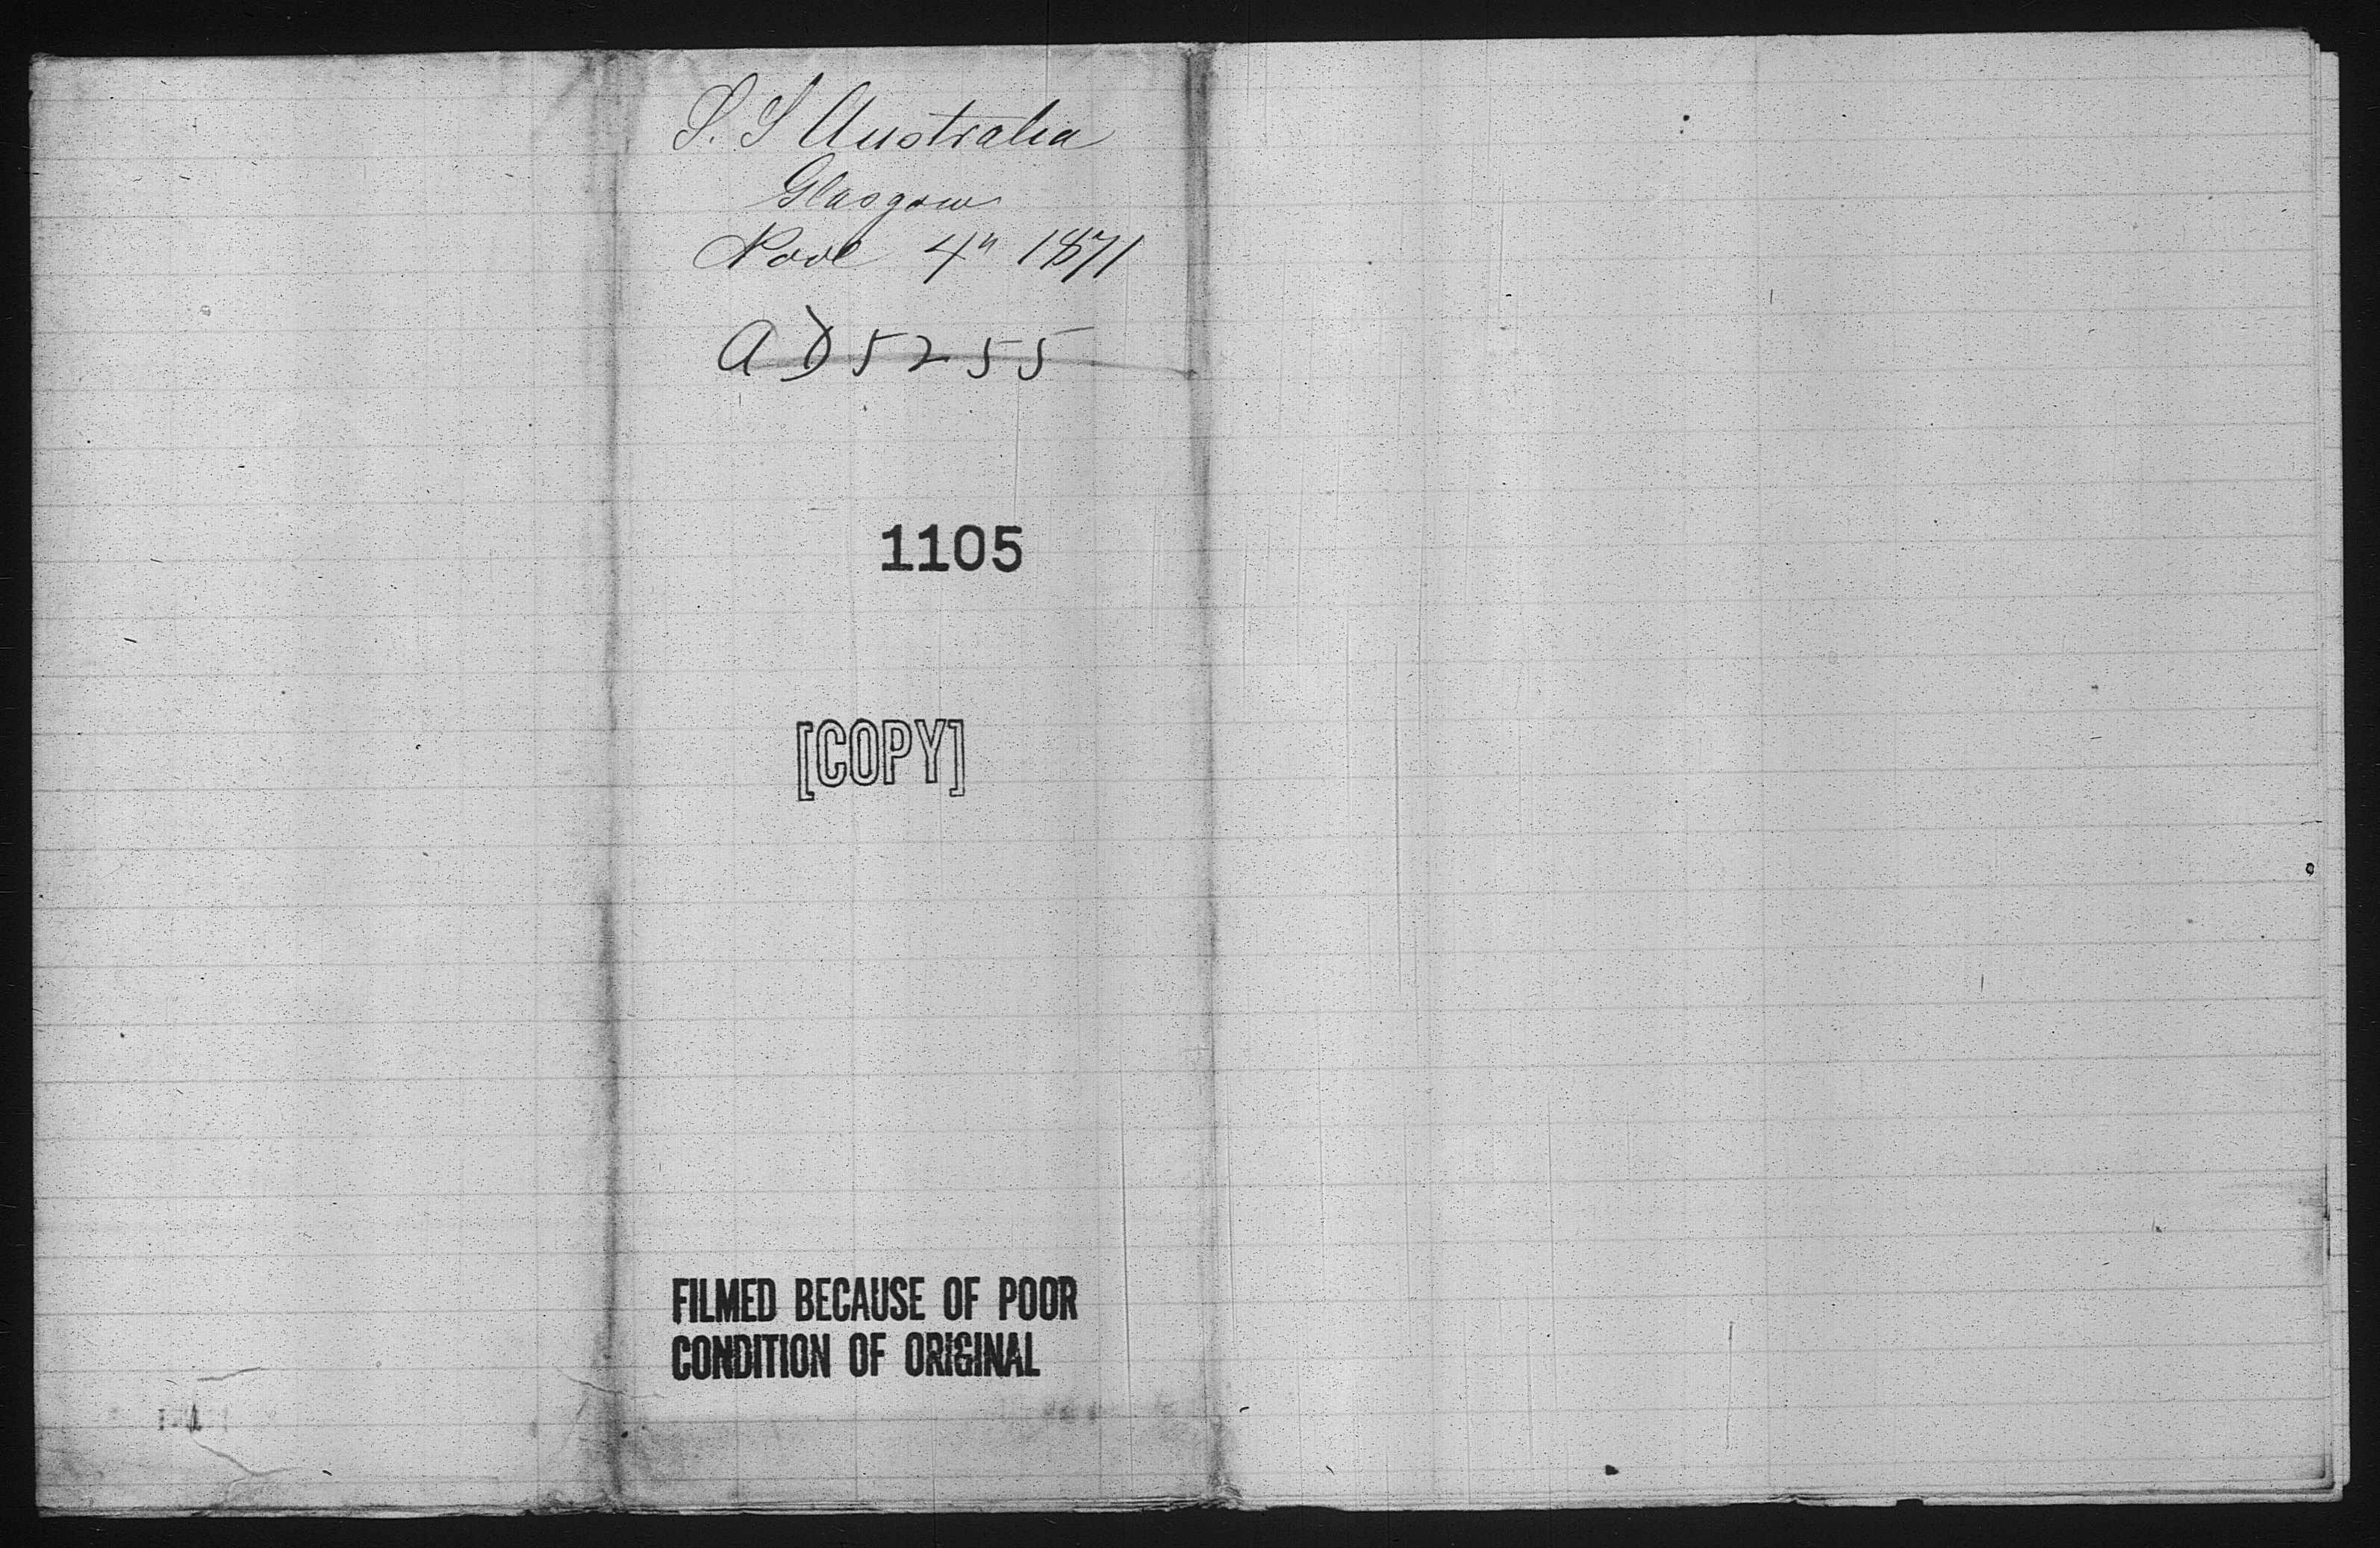 S. S Australia
Glasgow
Nove 4" 1871
AD 5255
1105
[COPY]
FILMED BECAUSE OF POOR
CONDITION OF ORIGINAL